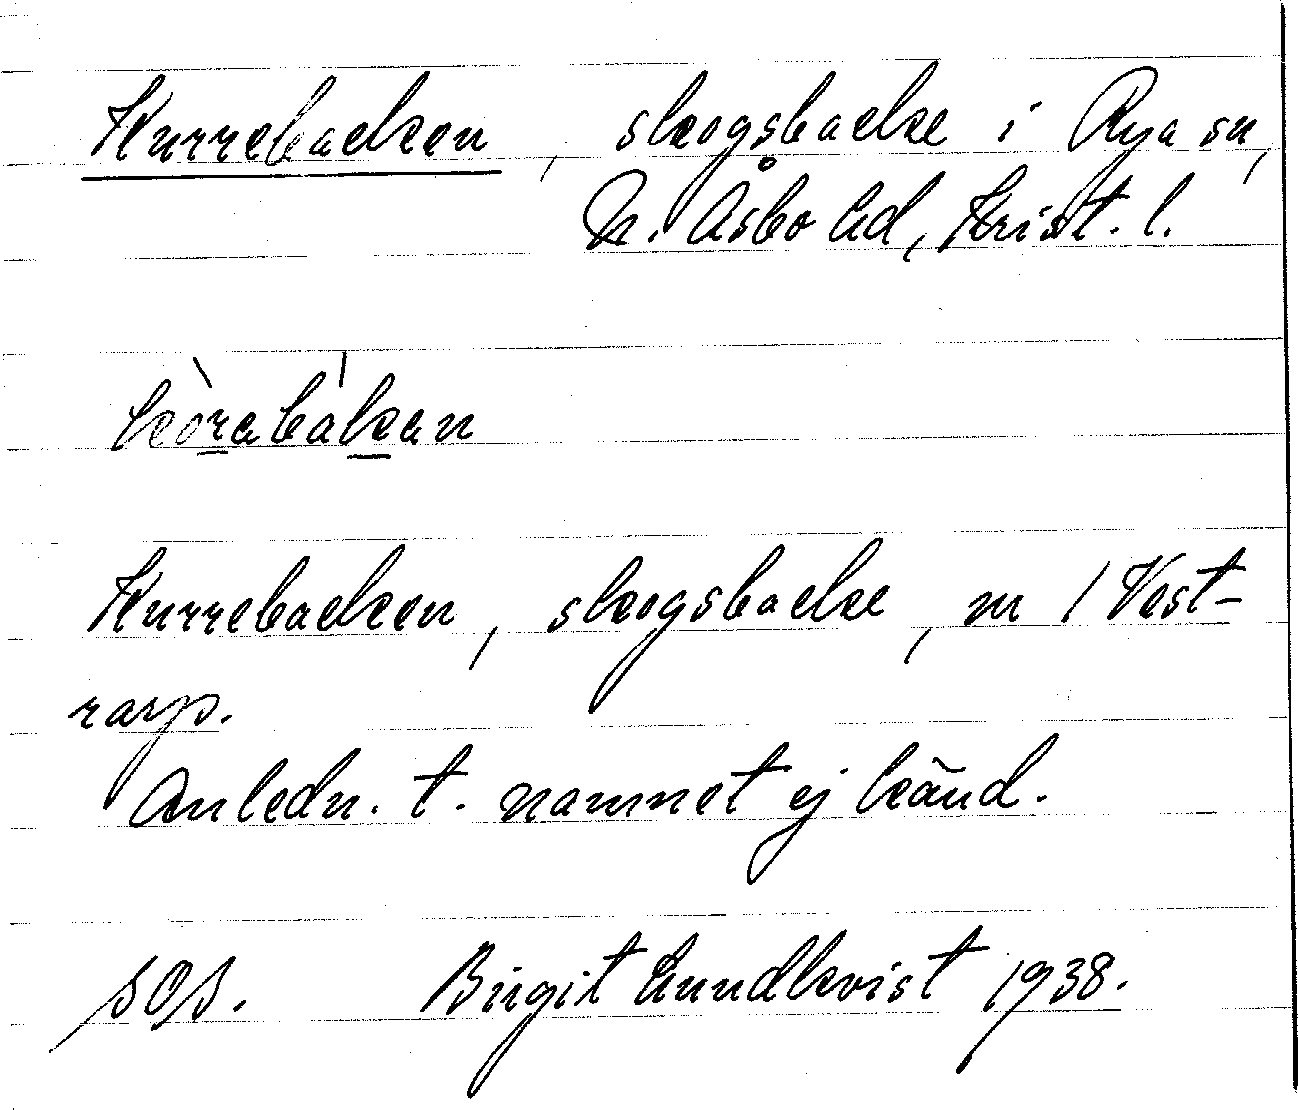 Kurrebacken, skogsbacke i Rya sn,
N. Åsbo hd, Krist. l.
kòrabákan
Kurrebacken, skogsbacke, m / Vest-
rarp.
Anledn. t. namnet ej känd.
SOS. Birgit Lundkvist 1938.